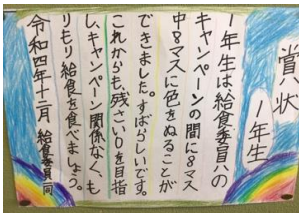 賞状
1年生
1年生は給食委員会の
キャンペーンの間に8マス
中8マスに色をぬることが
できました。すばらしいです。
これからも、残さい0を目指
し、キャンペーン関係なく、も
りもり給食を食べましょう。
令和四年十二月 給食委員一同